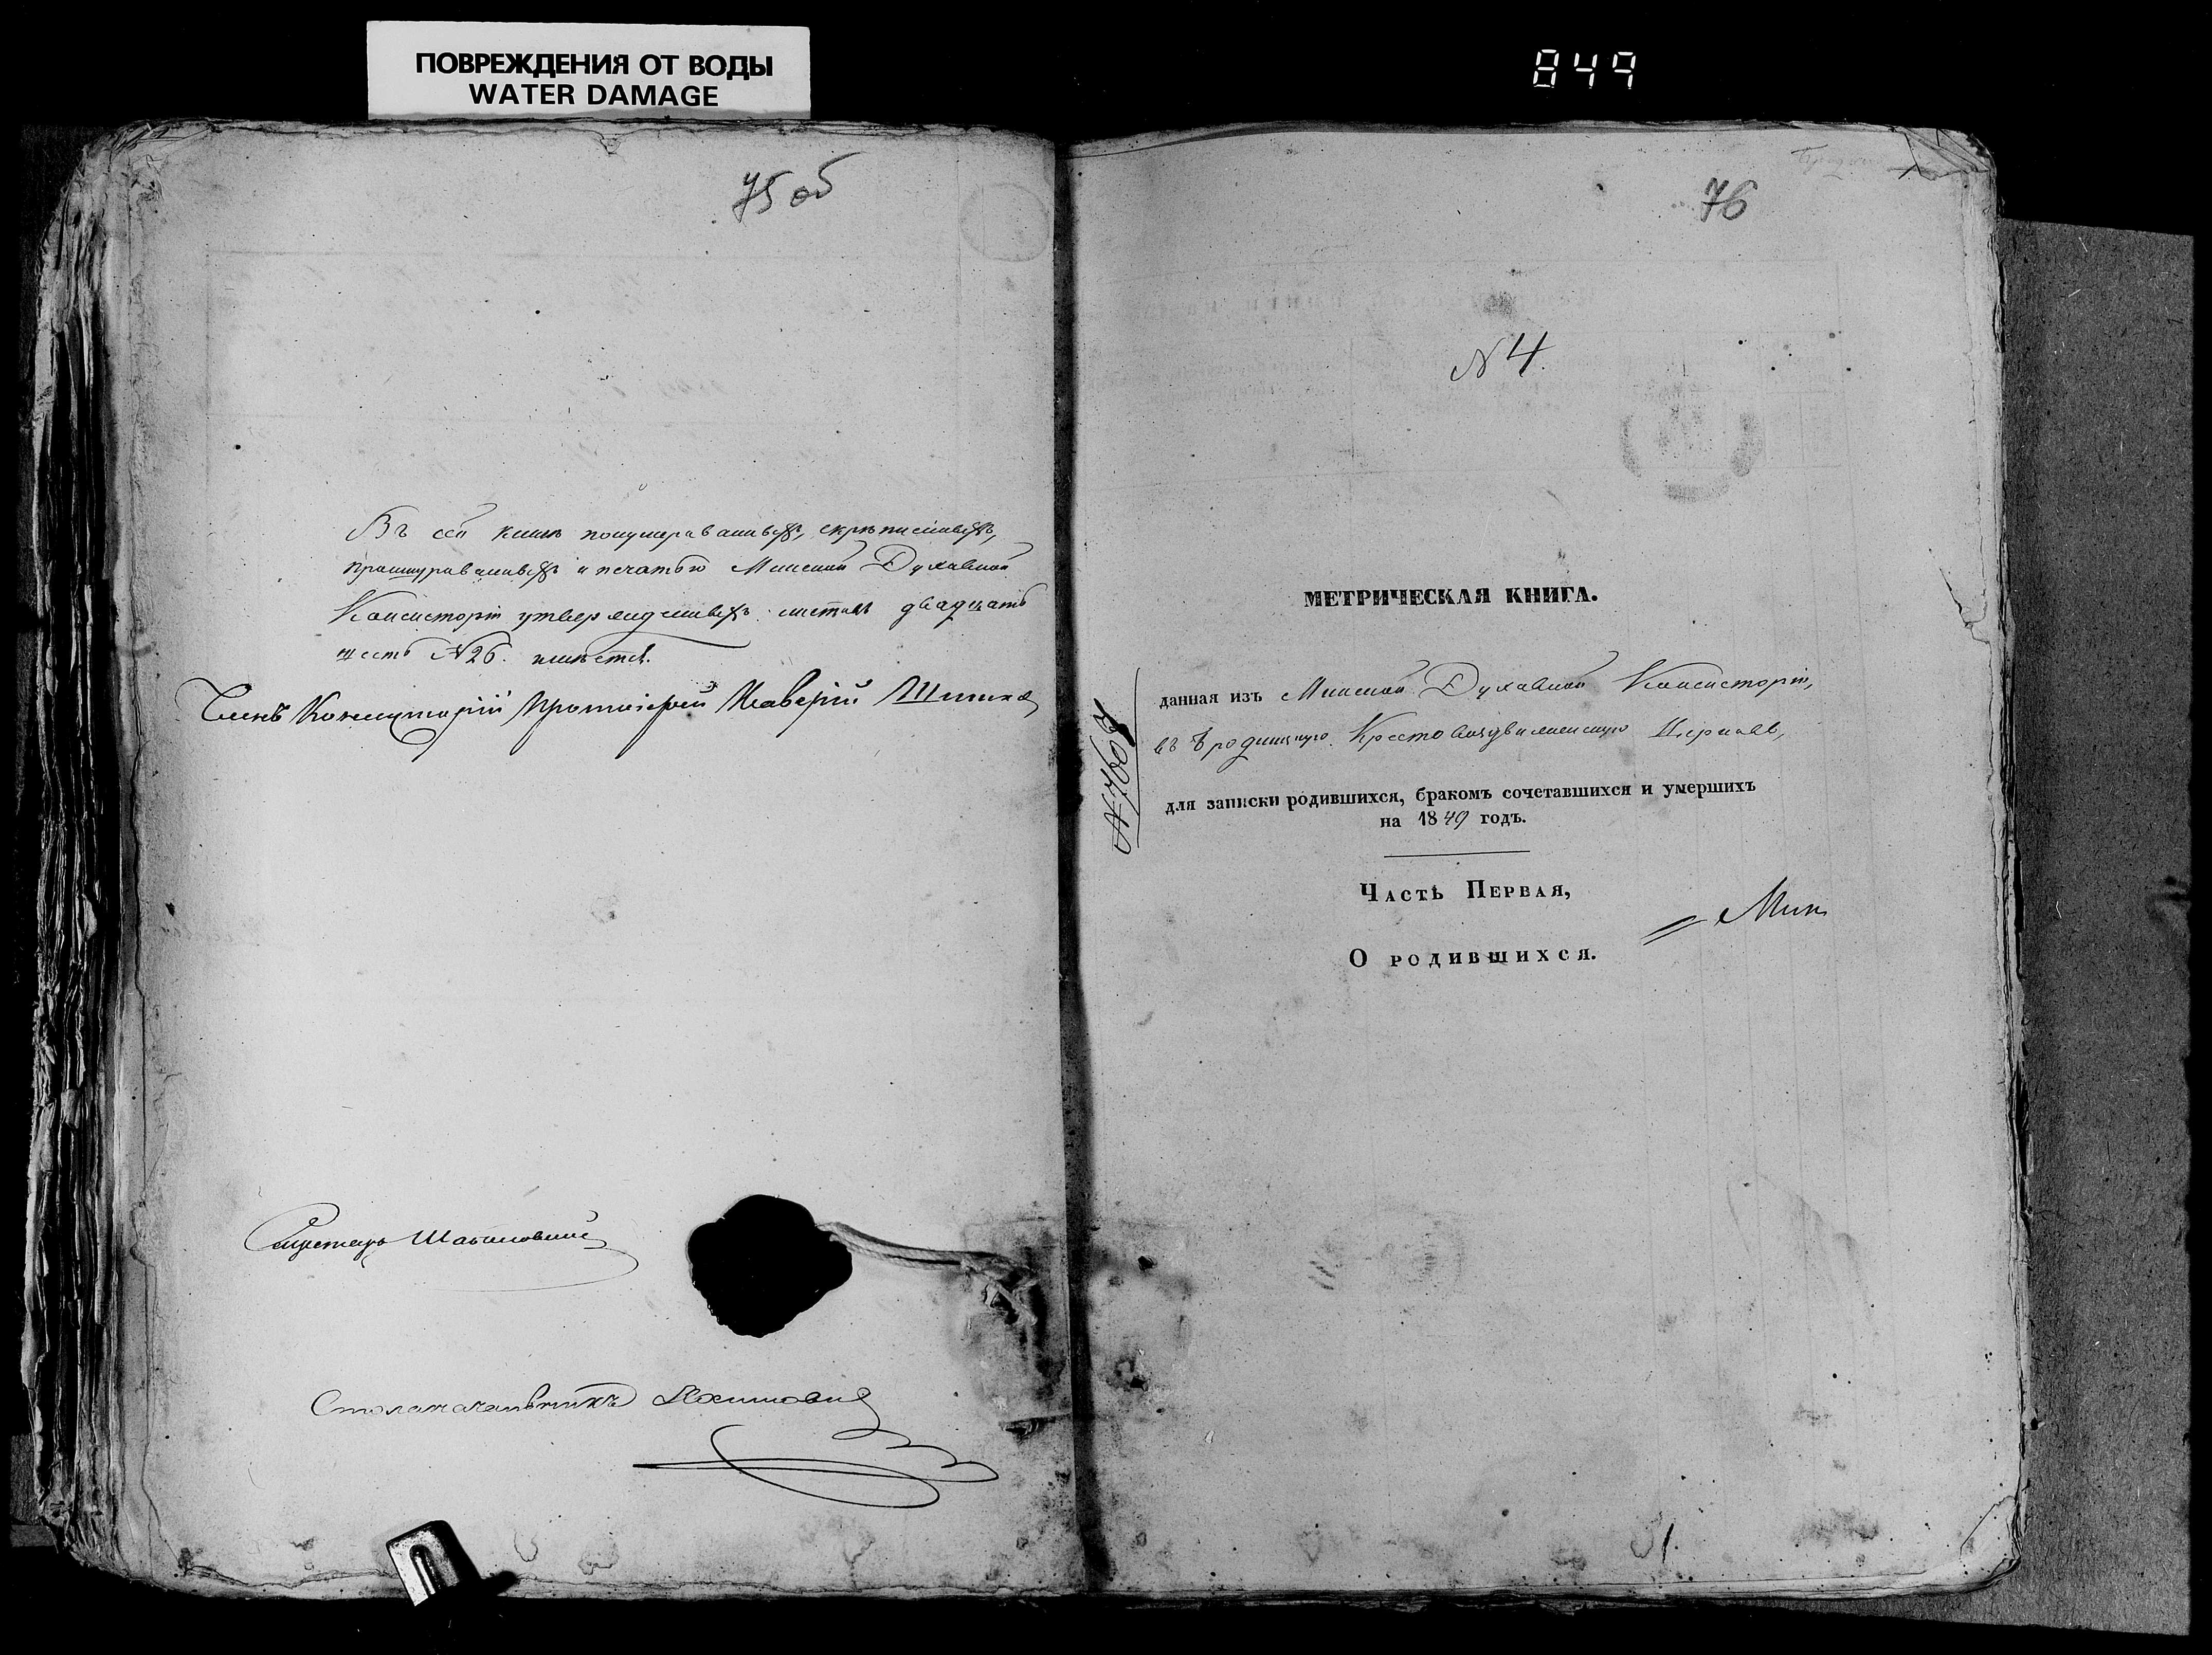 ПОВРЕЖДЕНИЯ ОТ ВОДЫ
WATER DAMAGE
849
75 об
Въ сей книгѣ понумерованныхъ, скрѣпленныхъ,
прошнурованныхъ и печатью Минской Духовной
Консисторіи утвержденныхъ листовъ двадцать
шесть N 26. имѣется.
Членъ Консисторіи Протоіерей
Секретарь
Столоначальникъ
76
N 4.
МЕТРИЧЕСКАЯ КНИГА.
данная изъ Минской Духовной Консисторіи,
въ Бродницкую Крестовоздвиженскую Церковь,
для записки родившихся, бракомъ сочетавшихся и умершихъ
на 1849 годъ.
Часть Первая,
О родившихся.